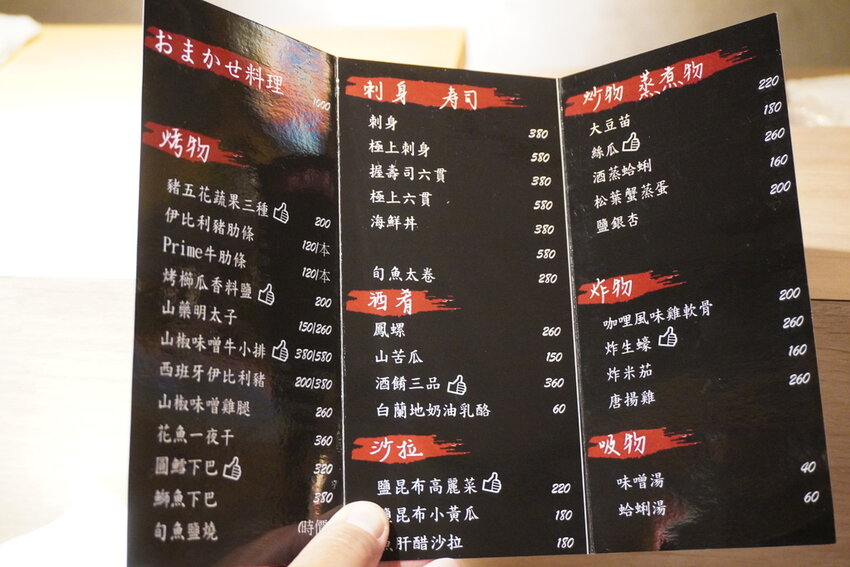 おまかせ料理
1000
烤物
豬五花蔬果三種 200
伊比利豬肋條 120/本
Prime牛肋條 120/本
烤櫛瓜香料鹽 200
山藥明太子 150/260
山椒味噌牛小排 380/580
西班牙伊比利豬 200/380
山椒味噌雞腿 260
花魚一夜干 360
圓鱈下巴 320
鰤魚下巴 380
旬魚鹽燒 (時價
刺身 寿司
刺身 380
極上刺身 580
握壽司六貫 380
極上六貫 580
海鮮丼 380
580
旬魚太卷 280
酒肴
鳳螺 260
山苦瓜 150
酒餚三品 360
白蘭地奶油乳酪 60
沙拉
鹽昆布高麗菜 220
昆布小黃瓜 180
肝醋沙拉 180
炒物 蒸煮物
大豆苗 220
絲瓜 180
酒蒸蛤蜊 260
松葉蟹蒸蛋 160
鹽銀杏 200
炸物
咖哩風味雞軟骨 200
炸生蠔 260
炸米茄 160
唐揚雞 260
吸物
味噌湯 40
蛤蜊湯 60